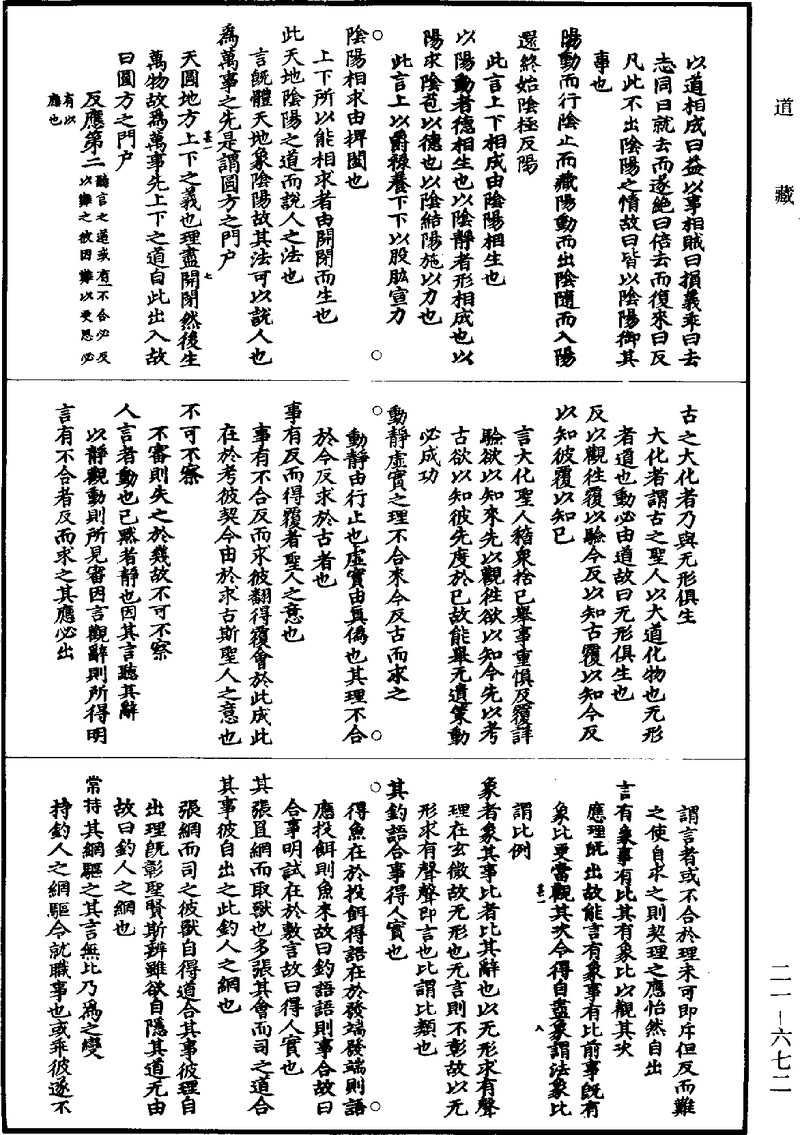 道藏
以道相成曰益以事相賊曰損義乖曰去
志同曰就去而遂絕曰倍去而復來曰反
凡此不出陰陽之情故曰皆以陰陽御其
事也
陽動而行陰止而藏陽動而出陰隨而入陽
還終始陰極反陽
此言上下相成由陰陽相生也
以陽動者德相生也以陰靜者形相成也以
陽求陰苞以德也以陰結陽施以力也
此言上以爵祿養下下以股肱宣力
陰陽相求由捭闔也
上下所以能相求者由開閉而生也
此天地陰陽之道而說人之法也
言既體天地象陰陽故其法可以說人也
為萬事之先是謂圓方之門户
天圓地方上下之義也理盡開閉然後生
甚一 七
萬物故為萬事先上下之道自此出入故
曰圓方之門户
反應第二 聽言之道或有不合必反以難之彼因難以更思必
有以應也
古之大化者乃與无形俱生
大化者謂古之聖人以大道化物也无形
者道也動必由道故曰无形俱生也
反以觀往覆以驗今反以知古覆以知今反
以知彼覆以知已
言大化聖人稽衆捨已舉事重慎反覆詳
驗欲以知來先以觀往欲以知今先以考
古欲以知彼先度於已故能舉无遺策動
必成功
動靜虛實之理不合來今反古而求之
動靜由行止也虛實由真僞也其理不合
於今反求於古者也
事有反而得覆者聖人之意也
事有不合反而求彼翻得覆會於此成此
在於考彼契今由於求古斯聖人之意也
不可不察
不審則失之於幾故不可不察
人言者動也已黙者靜也因其言聽其辭
以靜觀動則所見審因言觀辭則所得明
言有不合者反而求之其應必出
謂言者或不合於理未可即斥但反而難
之使自求之則契理之應怡然自出
言有象事有比其有象比以觀其次
應理既出故能言有象事有比前事既有
象比更當觀其次令得自盡象謂法象比
甚一 八
謂比例
象者象其事比者比其辭也以无形求有聲
理在玄微故无形也无言則不彰故以无
形求有聲聲即言也比謂比類也
其釣語合事得人實也
得魚在於投餌得語在於發端發端則語
應投餌則魚來故曰釣語語則事合故曰
合事明試在於敷言故曰得人實也
其張罝網而取獸也多張其會而司之道合
其事彼自出之此釣人之網也
張網而司之彼獸自得道合其事彼理自
出理既彰聖賢斯辨雖欲自隱其道无由
故曰釣人之網也
常持其網驅之其言無比乃為之變
持釣人之網驅令就職事也或乖彼遂不
二一－六七二